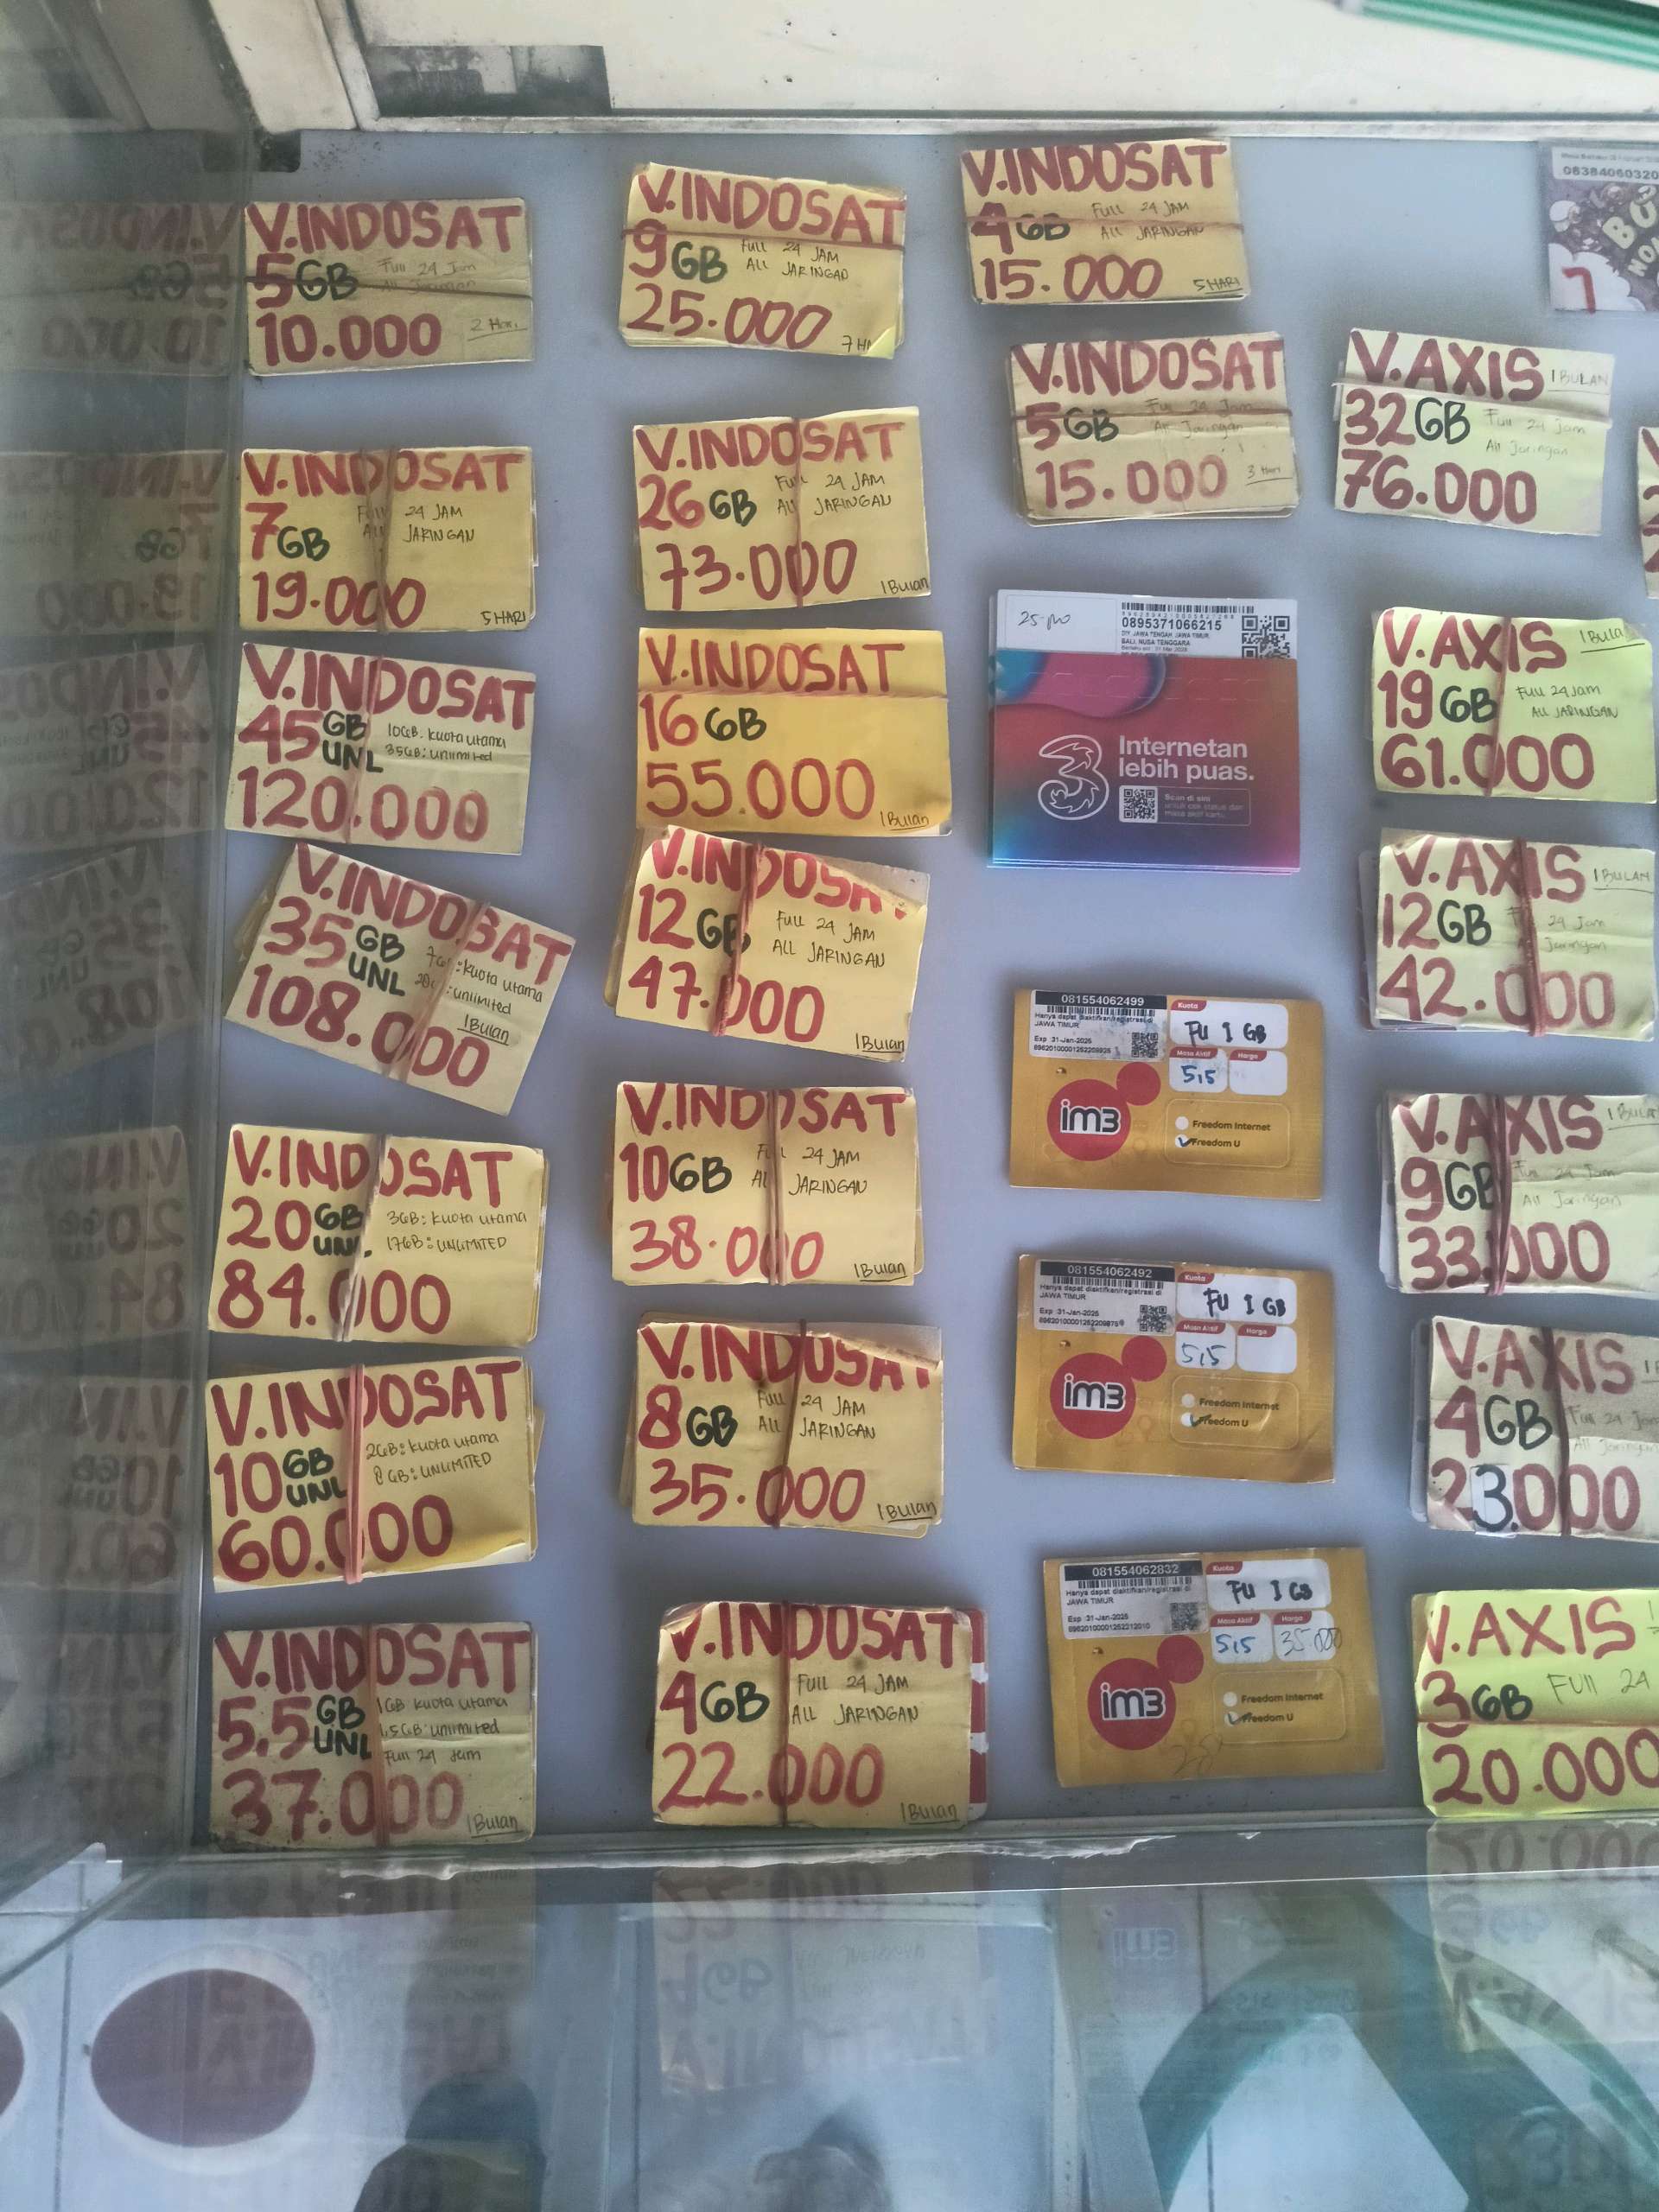 V.INDOSAT
5GB Full 24 Jam
All Jaringan
10.000 2 Hari
V.INDOSAT
7GB Full 24 JAM
ALL JARINGAN
19.000 5 HARI
V.INDOSAT
45 GB UNL 10GB: kuota utama
35GB: unlimited
120.000
V.INDOSAT
35 GB UNL :kuota utama
:unlimited
108.000 1 Bulan
V.INDOSAT
20 GB UNL 3GB: kuota utama
17GB: UNLIMITED
84.000
V.INDOSAT
10 GB UNL 2GB: kuota utama
8GB: UNLIMITED
60.000
V.INDOSAT
5,5 GB UNL 1GB kuota utama
unlimited
Full 24 Jam
37.000 1 Bulan
V.INDOSAT
9GB FULL 24 JAM
ALL JARINGAN
25.000
V.INDOSAT
26GB FULL 24 JAM
ALL JARINGAN
73.000 1 Bulan
V.INDOSAT
16GB
55.000 1 Bulan
V.INDOSAT
12GB FULL 24 JAM
ALL JARINGAN
47.000 1 Bulan
V.INDOSAT
10GB FULL 24 JAM
ALL JARINGAN
38.000 1 Bulan
V.INDOSAT
8GB FULL 24 JAM
ALL JARINGAN
35.000 1 Bulan
V.INDOSAT
4GB FULL 24 JAM
ALL JARINGAN
22.000 1 Bulan
V.INDOSAT
4GB FULL 24 JAM
ALL JARINGAN
15.000 5 HARI
V.INDOSAT
5GB Full 24 Jam
All Jaringan
15.000 3 Hari
0895371066215
DIY, JAWA TENGAH, JAWA TIMUR
BALI, NUSA TENGGARA
3 Internetan
lebih puas.
Scan di sini
untuk cek status dan
masa aktif kartu.
081554062499 Kuota
Hanya dapat diaktifkan/registrasi di
JAWA TIMUR
FU 1 GB
Exp 31-Jan-2025
Masa Aktif Harga
5,5
im3
Freedom Internet
Freedom U
081554062492 Kuota
Hanya dapat diaktifkan/registrasi di
JAWA TIMUR
FU 1 GB
Exp 31-Jan-2025
Masa Aktif Harga
5,5
im3
Freedom Internet
Freedom U
081554062832 Kuota
Hanya dapat diaktifkan/registrasi di
JAWA TIMUR
FU 1 GB
Exp 31-Jan-2025
Masa Aktif Harga
5,5 35.000
im3
Freedom Internet
Freedom U
7
V.AXIS 1 BULAN
32GB Full 24 Jam
All Jaringan
76.000
V.AXIS
19GB FULL 24 Jam
ALL JARINGAN
61.000
V.AXIS 1 BULAN
12GB 24 Jam
Jaringan
42.000
V.AXIS
9GB Full 24 Jam
All Jaringan
33.000
V.AXIS
4GB Full 24 Jam
All Jaringan
23.000
V.AXIS
3GB FULL 24
20.000